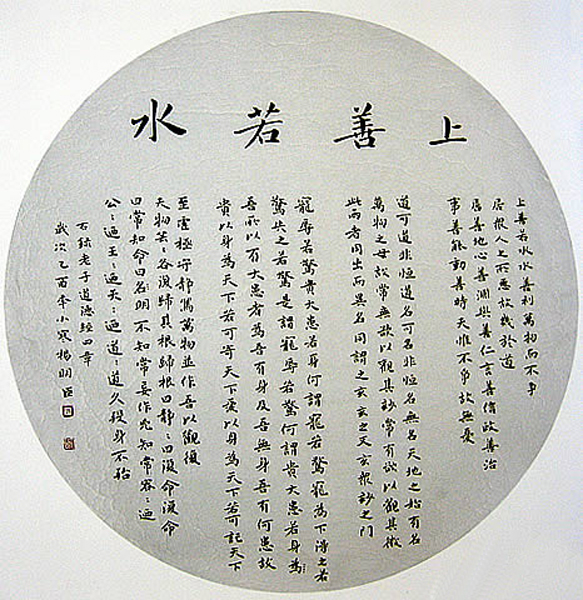 上善若水
上善若水水善利萬物而不爭
居眾人之所惡故幾於道
居善地心善淵與善仁言善信政善治
事善能動善時夫惟不爭故無憂
道可道非恒道名可名非恒名無名天地之始有名
萬物之母故常無欲以觀其妙常有欲以觀其徼
此两者同出而異名同謂之玄玄之又玄眾妙之門
寵辱若驚貴大患若身何謂寵若驚寵為下得之若
驚失之若驚是謂寵辱若驚何謂貴大患若身為
吾所以有大患者為吾有身及吾無身吾有何患故
貴以身為天下若可寄天下愛以身為天下若可託天下
至虛極守靜篤萬物並作吾以觀復
夫物芸〻各復歸其根歸根曰靜〻曰復命復命
曰常知命曰名明不知常妄作凶知常容〻迺
公〻迺王〻迺天〻迺道〻久歿身不殆
右錄老子道德經四章
歲次乙酉年小寒楊明臣